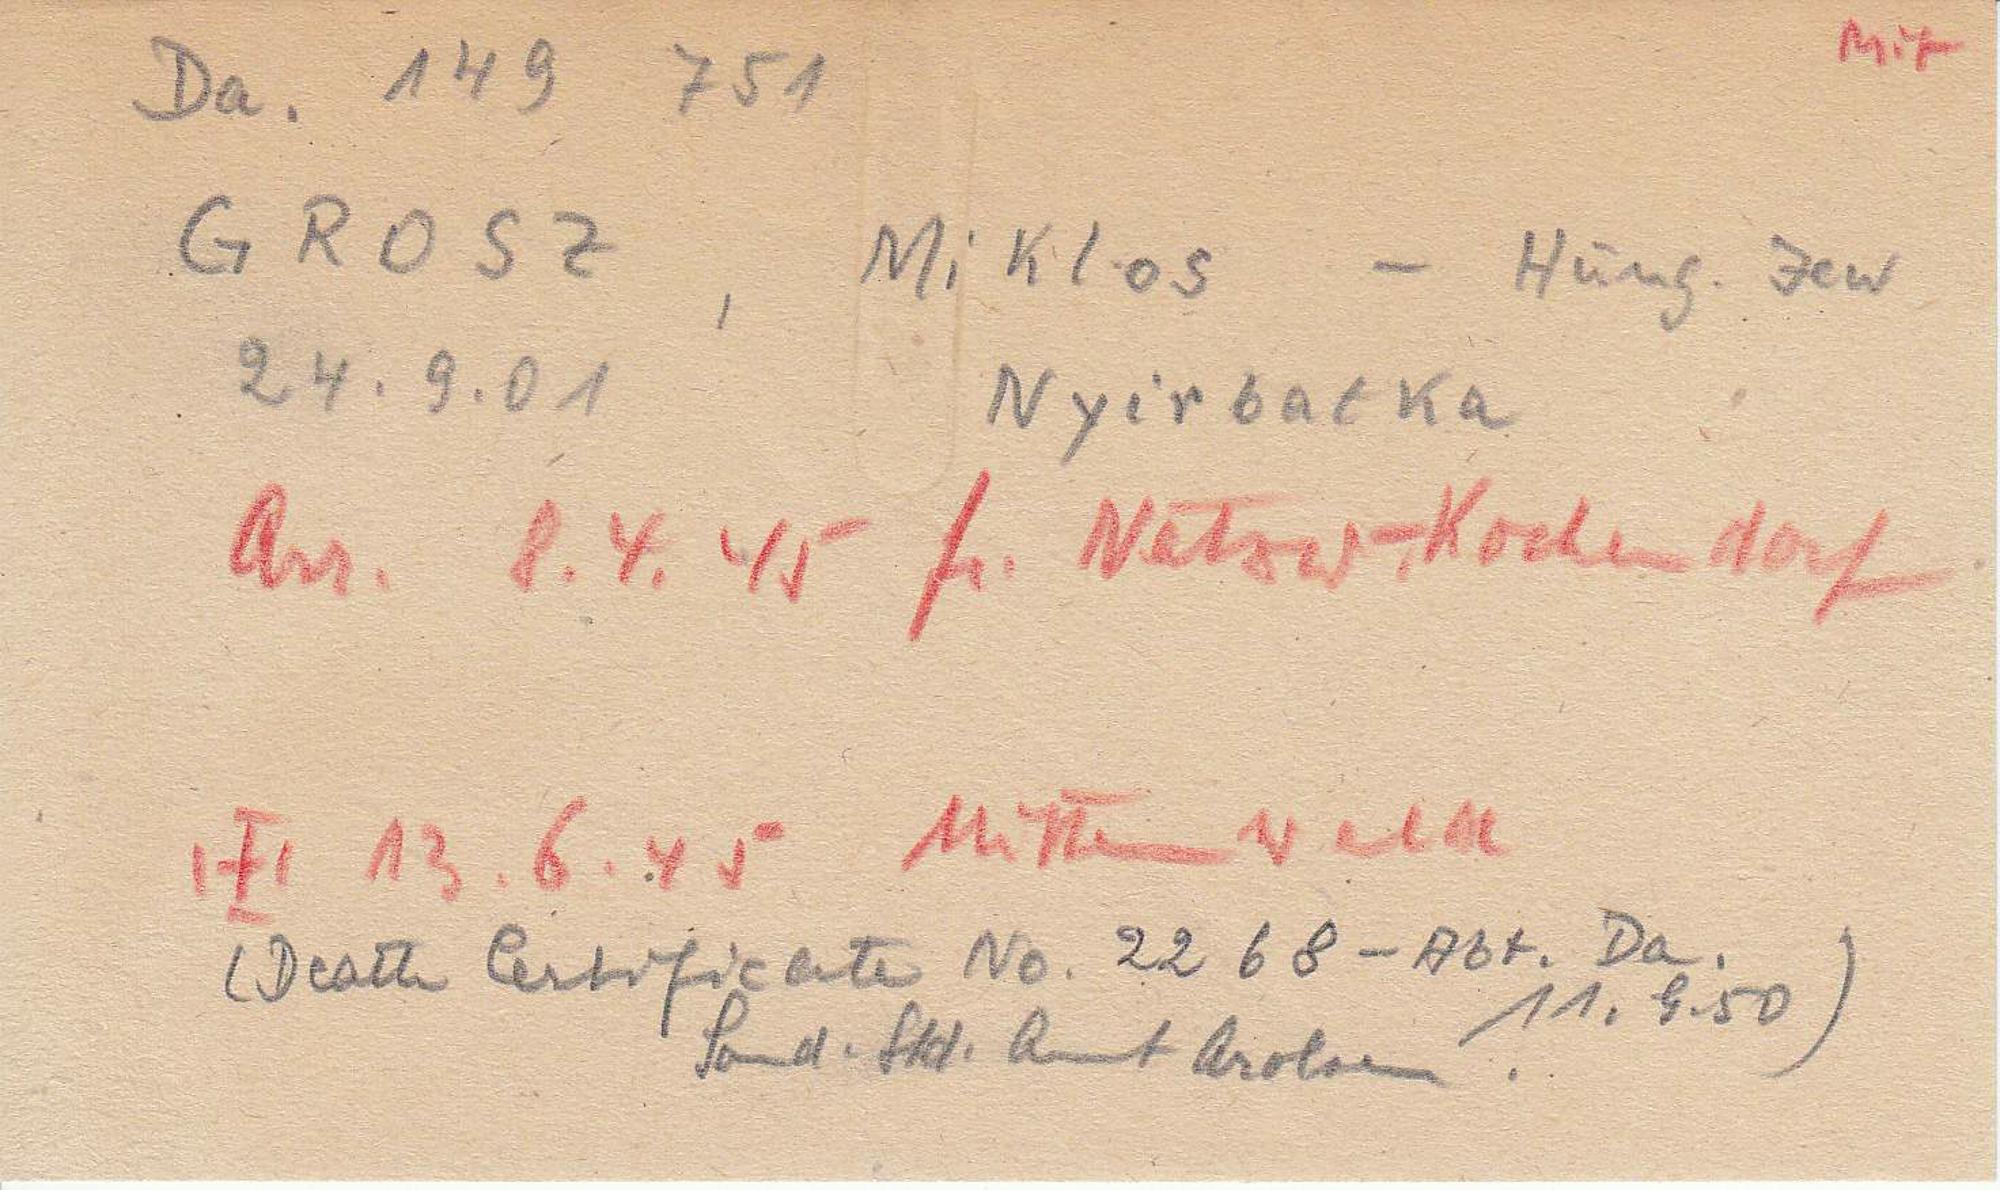 Mit
Da. 149 751
GROSZ, Miklos - Hung. Jew
24.9.01 Nyirbatka
Arr. 8.4.45 fr. Natzw-Kochendorf
13.6.45 Mittenwald
(Death Certificate No. 2268 - Abt. Da.
11.9.50)
Sond. Std. Amt Arolsen.